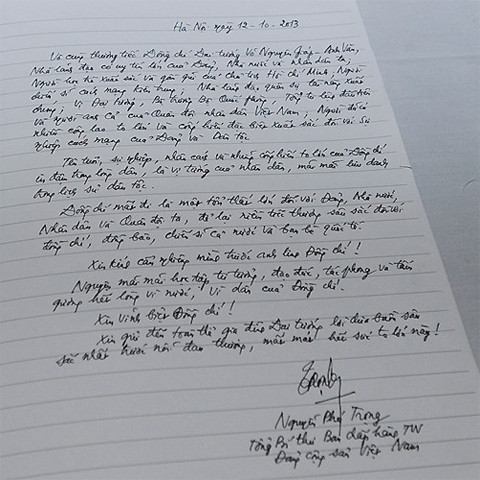 Hà Nội ngày 12-10-2013
Vô cùng thương tiếc Đồng chí Đại tướng Võ Nguyên Giáp - Anh Văn,
Nhà lãnh đạo có uy tín lớn của Đảng, Nhà nước và nhân dân ta;
Người học trò xuất sắc và gần gũi của Chủ tịch Hồ Chí Minh; Người
chiến sĩ cách mạng kiên trung; Nhà lãnh đạo quân sự tài năng xuất
chúng; Vị Đại tướng, Bộ trưởng Bộ Quốc phòng, Tổng tư lệnh đầu tiên
và Người anh cả của Quân đội nhân dân Việt Nam; Người đã có
nhiều công lao to lớn và cống hiến đặc biệt xuất sắc đối với sự
nghiệp cách mạng của Đảng và Dân tộc.
Tên tuổi, sự nghiệp, nhân cách và những cống hiến to lớn của Đồng chí
in đậm trong lòng dân, là vị tướng của nhân dân, mãi mãi lưu danh
trong lịch sử dân tộc.
Đồng chí mất đi là một tổn thất lớn đối với Đảng, Nhà nước,
Nhân dân và Quân đội ta, để lại niềm tiếc thương sâu sắc đối với
đồng chí, đồng bào, chiến sĩ cả nước và bạn bè quốc tế.
Xin kính cẩn nghiêng mình trước anh linh Đồng chí!
Nguyện mãi mãi học tập tư tưởng, đạo đức, tác phong và tấm
gương hết lòng vì nước, vì dân của Đồng chí.
Xin vĩnh biệt Đồng chí!
Xin gửi đến toàn thể gia đình Đại tướng lời chia buồn sâu
sắc nhất trước nỗi đau thương, mất mát hết sức to lớn này!
Nguyễn Phú Trọng
Tổng Bí thư Ban Chấp hành TW
Đảng Cộng sản Việt Nam